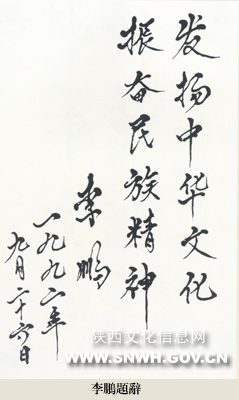 发扬中华文化
振奋民族精神
李鹏
一九九二年
九月二十六日
陕西文化信息网
WWW.SNWH.GOV.CN
李鹏題辭